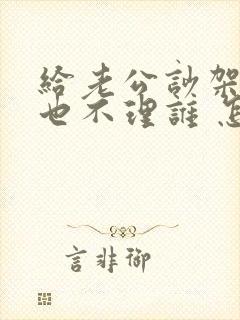 給老公訬架
也不理誰
言非御